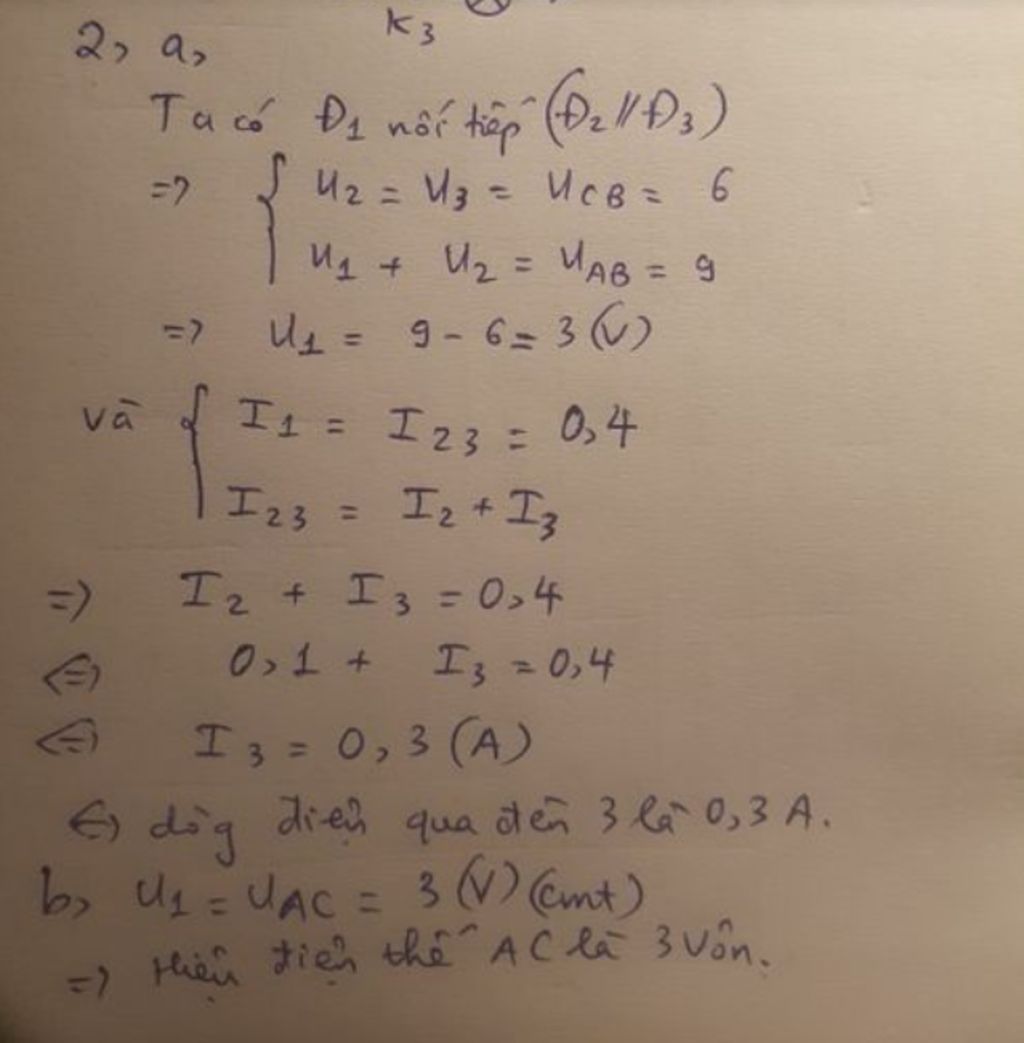 K3
2, a,
Ta có Đ1 nối tiếp (Đ2 // Đ3)
=> { U2 = U3 = UCB = 6
U1 + U2 = UAB = 9
=> U1 = 9 - 6 = 3 (V)
và { I1 = I23 = 0,4
I23 = I2 + I3
=> I2 + I3 = 0,4
<=> 0,1 + I3 = 0,4
<=> I3 = 0,3 (A)
<=> dòg điện qua đèn 3 là 0,3 A.
b, U1 = UAC = 3 (V) (cmt)
=> Hiệu điện thế AC là 3 Vôn.